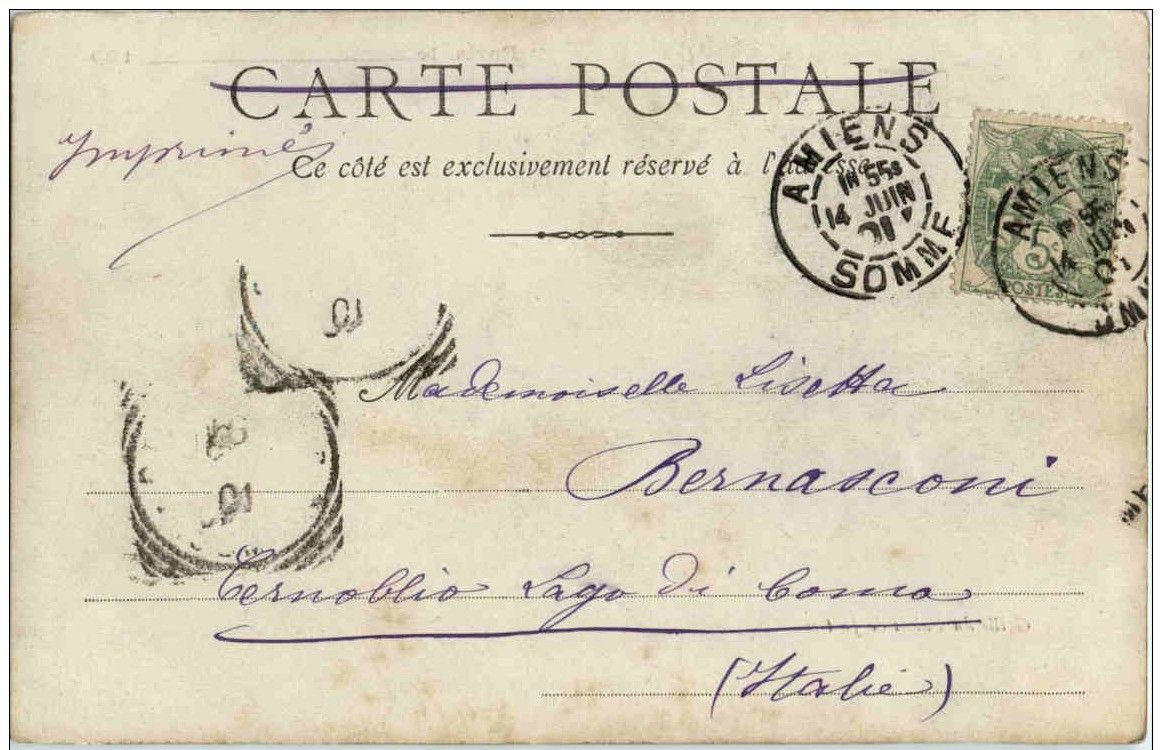 CARTE POSTALE
Imprimés
Ce côté est exclusivement réservé à l'adresse
AMIENS
55
14 JUIN
01
SOMME
5c
POSTES
AMIENS
55
14 JUIN
01
SOMME
Mademoiselle Lisetta
Bernasconi
Cernobbio Lago di Como
(Italie)